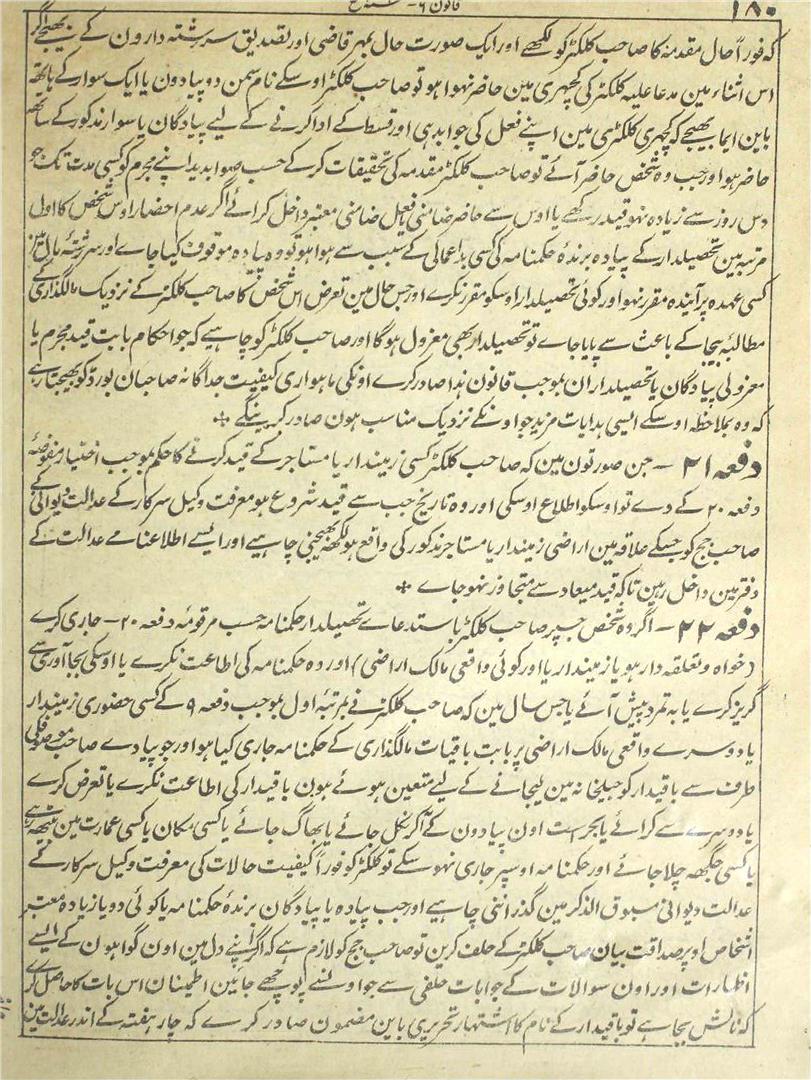 ۱۸۰
قانون ۶ -
کہ فوراً حال مقدمہ کا صاحب کلکٹر کو لکھے اور ایک صورت حال بمہر قاضی اور تصدیق سررشتہ دارون کے بھیجے اگر
اس اثناء مین مدعا علیہ کلکٹر کی کچہری مین حاضر نہوا ہو تو صاحب کلکٹر اوسکے نام سمن دو پیادون یا ایک سوار کے ہاتھ
باین ایما بھیجے کہ کچہری کلکٹری مین اپنے فعل کی جوابدہی اور قسط کے ادا کرنے کے لیے پیادگان یا سوار مذکور کے ساتھ
حاضر ہو اور جب وہ شخص حاضر آئے تو صاحب کلکٹر مقدمہ کی تحقیقات کرکے حسب صوابدید اپنے مجرم کو کسی مدت تک جو
دس روز سے زیادہ نہو قید رکھے یا اوس سے حاضر ضامنی یا فعل ضامنی معتبر داخل کرائے اگر عدم احضار اوس شخص کا اولی
مرتبہ مین تحصیلدار کے پیادہ برندۂ حکمنامہ کی کسی بداعمالی کے سبب سے ہوا ہو تو وہ پیادہ موقوف کیا جاے اور سررشتۂ مال مین
کسی عہدہ پر آیندہ مقرر نہو اور کوئی تحصیلدار اوسکو مقرر نکرے اور جس حال مین تعرض اس شخص کا صاحب کلکٹر کے نزدیک مالگذاری کے
مطالبۂ بیجا کے باعث سے پایا جاے تو تحصیلدار بھی معزول ہوگا اور صاحب کلکٹر کو چاہیے کہ جو احکام بابت قید مجرم یا
معزولی پیادگان یا تحصیلداران بموجب قانون ہذا صادر کرے اونکی ماہواری کیفیت جداگانہ صاحبان بورڈ کو بھیجتا رہے
کہ وہ بملاحظہ اوسکے ایسی ہدایات مزید جو اونکے نزدیک مناسب ہون صادر کرینگے ❊
دفعہ ۲۱ - جن صورتون مین کہ صاحب کلکٹر کسی زمیندار یا مستاجر کے قید کرنے کا حکم بموجب اختیار مفوضۂ
دفعہ ۲۰ کے دے تو اوسکو اطلاع اوسکی اور وہ تاریخ جب سے قید شروع ہو معرفت وکیل سرکار کے عدالت دیوانی کے
صاحب جج کو جسکے علاقہ مین اراضی زمیندار یا مستاجر مذکور کی واقع ہو لکھ بھیجنی چاہیے اور ایسے اطلاعنامے عدالت کے
دفتر مین داخل رہین تاکہ قید میعاد سے متجاوز نہوجاے ❊
دفعہ ۲۲ - اگر وہ شخص جسپر صاحب کلکٹر باستدعاے تحصیلدار حکمنامہ حسب مرقومۂ دفعہ ۲۰ - جاری کرے
(خواہ وہ تعلقہ دار ہو یا زمیندار یا اور کوئی واقعی مالک اراضی) اور وہ حکمنامہ کی اطاعت نکرے یا اوسکی بجاآوری سے
گریز کرے یا بہ تمرد پیش آئے یا جس سال مین کہ صاحب کلکٹر نے بمرتبۂ اول بموجب دفعہ ۹ کے کسی حضوری زمیندار
یا دوسرے واقعی مالک اراضی پر بابت باقیات مالگذاری کے حکمنامہ جاری کیا ہو اور جو پیادے صاحب موصوف کی
طرف سے باقیدار کو جیلخانہ مین لیجانے کے لیے متعین ہوئے ہون باقیدار کی اطاعت نکرے یا تعرض کرے
یا دوسرے سے کرائے یا بحراست اون پیادون کے آکر نکل جائے یا بھاگ جائے یا کسی مکان یا کسی عمارت مین بیٹھ رہے
یا کسی جگہہ چلا جائے اور حکمنامہ اوسپر جاری نہوسکے تو کلکٹر کو فوراً کیفیت حالات کی معرفت وکیل سرکار کے
عدالت دیوانی مسبوق الذکر مین گذراننی چاہیے اور جب پیادہ یا پیادگان برندۂ حکمنامہ یا کوئی دو یا زیادہ معتبر
اشخاص اوپر صداقت بیان صاحب کلکٹر کے حلف کرین تو صاحب جج کو لازم ہے کہ اگر اپنے دل مین اون گواہون کے ایسے
اظہارات اور اون سوالات کے جوابات حلفی سے جو اونسے پوچھے جائین اطمینان اس بات کا حاصل کرے
کہ نالش بجا ہے تو باقیدار کے نام کا اشتہار تحریری باین مضمون صادر کرے کہ چار ہفتہ کے اندر عدالت مین